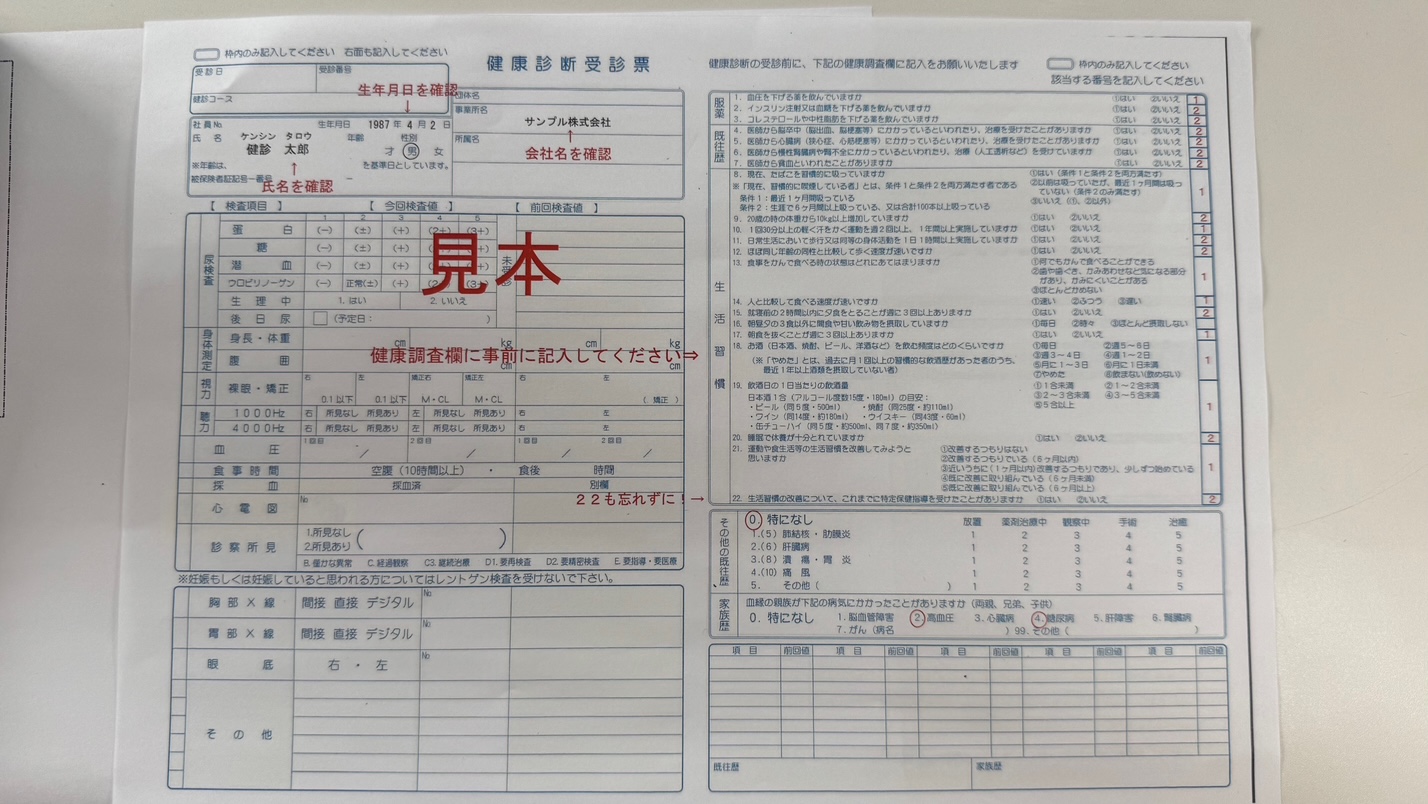 枠内のみ記入してください 右面も記入してください
健康診断受診票
受診日 受診番号
健診コース
生年月日を確認
↓
団体名
事業所名
サンプル株式会社
↑
会社名を確認
所属名
社員No
生年月日 1987年 4月 2日
氏 名
ケンシン タロウ
健診 太郎
年齢 性別
才 男 女
※年齢は、 を基準日としています。
被保険者証記号ー番号 ー
↑
氏名を確認
【 検査項目 】 【 今回検査値 】 【 前回検査値 】
1 2 3 4 5
尿検査
蛋 白 (−) (±) (+) (2+) (3+)
糖 (−) (±) (+)
潜 血 (−) (±) (+)
ウロビリノーゲン (−) 正常(±) (+)
見本
生 理 中 1. はい 2. いいえ
後 日 尿 (予定日: )
身体測定
身長・体重 cm kg cm kg
腹 囲 cm cm
健康調査欄に事前に記入してください⇒
視力
裸眼・矯正
右 左 矯正右 矯正左 右 左
0.1以下 0.1以下 M・CL M・CL (. 矯正 )
聴力
1000Hz 右 所見なし 所見あり 左 所見なし 所見あり 右 左
4000Hz 右 所見なし 所見あり 左 所見なし 所見あり 右 左
血 圧 1回目 / 2回目 / 1回目 / 2回目 /
食事時間 空腹(10時間以上) ・ 食後 時間
採 血 採血済 別欄
22も忘れずに!→
心 電 図 No
診察所見
1.所見なし
2.所見あり ( )
B. 僅かな異常 C. 経過観察 C3. 継続治療 D1. 要再検査 D2. 要精密検査 E. 要指導・要医療
※妊娠もしくは妊娠していると思われる方についてはレントゲン検査を受けないで下さい。
胸部X線 間接 直接 デジタル No
胃部X線 間接 直接 デジタル No
眼 底 右 ・ 左 No
そ の 他
健康診断の受診前に、下記の健康調査欄に記入をお願いいたします
枠内のみ記入してください
該当する番号を記入してください
服薬
1. 血圧を下げる薬を飲んでいますか ①はい ②いいえ 1
2. インスリン注射又は血糖を下げる薬を飲んでいますか ①はい ②いいえ 2
3. コレステロールや中性脂肪を下げる薬を飲んでいますか ①はい ②いいえ 2
既往歴
4. 医師から脳卒中(脳出血、脳梗塞等)にかかっているといわれたり、治療を受けたことがありますか ①はい ②いいえ 2
5. 医師から心臓病(狭心症、心筋梗塞等)にかかっているといわれたり、治療を受けたことがありますか ①はい ②いいえ 2
6. 医師から慢性腎臓病や腎不全にかかっているといわれたり、治療(人工透析など)を受けていますか ①はい ②いいえ 2
7. 医師から貧血といわれたことがありますか ①はい ②いいえ 2
生活習慣
8. 現在、たばこを習慣的に吸っていますか ①はい(条件1と条件2を両方満たす)
※「現在、習慣的に喫煙している者」とは、条件1と条件2を両方満たす者である ②以前は吸っていたが、最近1ヶ月間は吸っ
条件1:最近1ヶ月間吸っている ていない(条件2のみ満たす) 1
条件2:生涯で6ヶ月間以上吸っている、又は合計100本以上吸っている ③いいえ(①、②以外)
9. 20歳の時の体重から10kg以上増加していますか ①はい ②いいえ 2
10. 1回30分以上の軽く汗をかく運動を週2回以上、1年間以上実施していますか ①はい ②いいえ 1
11. 日常生活において歩行又は同等の身体活動を1日1時間以上実施していますか ①はい ②いいえ 2
12. ほぼ同じ年齢の同性と比較して歩く速度が速いですか ①はい ②いいえ 2
13. 食事をかんで食べる時の状態はどれにあてはまりますか ①何でもかんで食べることができる
②歯や歯ぐき、かみあわせなど気になる部分
があり、かみにくいことがある 1
③ほとんどかめない
14. 人と比較して食べる速度が速いですか ①速い ②ふつう ③遅い 1
15. 就寝前の2時間以内に夕食をとることが週に3回以上ありますか ①はい ②いいえ 2
16. 朝昼夕の3食以外に間食や甘い飲み物を摂取していますか ①毎日 ②時々 ③ほとんど摂取しない
17. 朝食を抜くことが週に3回以上ありますか ①はい ②いいえ 1
18. お酒(日本酒、焼酎、ビール、洋酒など)を飲む頻度はどのくらいですか ①毎日 ②週5〜6日
③週3〜4日 ④週1〜2日
(※「やめた」とは、過去に月1回以上の習慣的な飲酒歴があった者のうち、 ⑤月に1〜3日 ⑥月に1日未満 1
最近1年以上酒類を摂取していない者) ⑦やめた ⑧飲まない(飲めない)
19. 飲酒日の1日当たりの飲酒量 ①1合未満 ②1〜2合未満
日本酒1合(アルコール度数15度・180ml)の目安: ③2〜3合未満 ④3〜5合未満
・ビール(同5度・500ml) ・焼酎(同25度・約110ml) ⑤5合以上 1
・ワイン(同14度・約180ml) ・ウイスキー(同43度・60ml)
・缶チューハイ(同5度・約500ml、同7度・約350ml)
20. 睡眠で休養が十分とれていますか ①はい ②いいえ 2
21. 運動や食生活等の生活習慣を改善してみようと ①改善するつもりはない
思いますか ②改善するつもりでいる(6ヶ月以内)
③近いうちに(1ヶ月以内)改善するつもりであり、少しずつ始めている 1
④既に改善に取り組んでいる(6ヶ月未満)
⑤既に改善に取り組んでいる(6ヶ月以上)
22. 生活習慣の改善について、これまでに特定保健指導を受けたことがありますか ①はい ②いいえ 2
その他の既往歴
0. 特になし 放置 薬剤治療中 観察中 手術 治癒
1.(5) 肺結核・肋膜炎 1 2 3 4 5
2.(6) 肝臓病 1 2 3 4 5
3.(8) 潰瘍・胃炎 1 2 3 4 5
4.(10) 痛 風 1 2 3 4 5
5. その他( ) 1 2 3 4 5
家族歴
血縁の親族が下記の病気にかかったことがありますか(両親、兄弟、子供)
0. 特になし 1. 脳血管障害 2. 高血圧 3. 心臓病 4. 糖尿病 5. 肝障害 6. 腎臓病
7. がん(病名 ) 99. その他( )
項 目 前回値 項 目 前回値 項 目 前回値 項 目 前回値 項 目 前回値
既往歴 家族歴